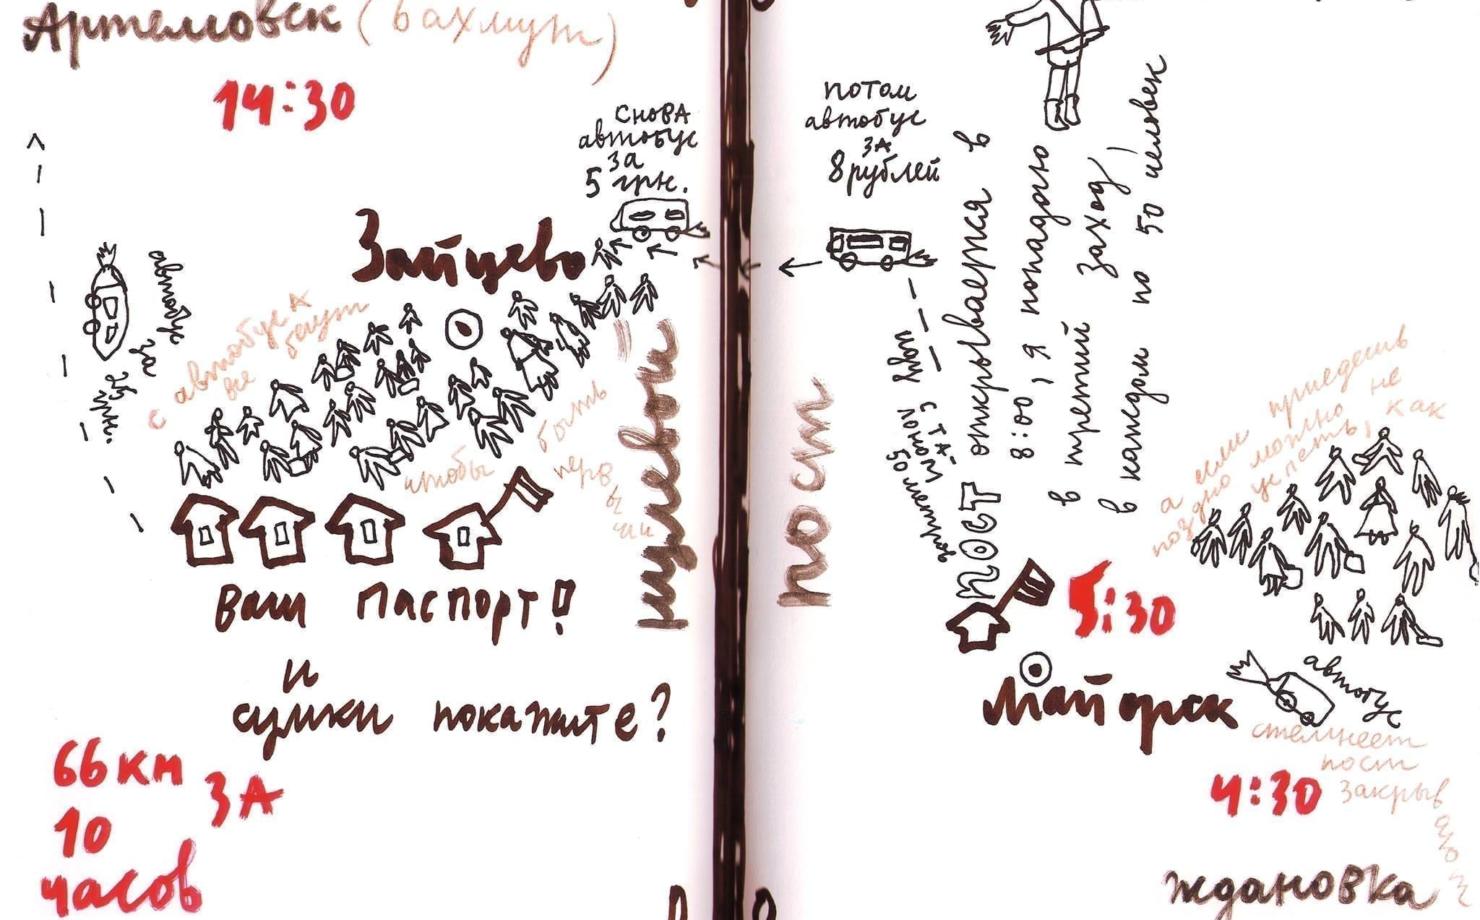 Артемовск (Бахмут)
14:30
снова
автобус
за
5 грн.
Зайцево
автобус
за
с автобуса
все бегут
чтобы
быть
перв
ы
ми
нулевой
Ваш паспорт!
и
сумки покажите?
66 км
за
10
часов
потом
автобус
за
8 рублей
пост
ПОСТ открывается в
8:00, я попадаю
в третий заход,
в каждом по 50 человек
50 метров
5:30
Майорск
а если приедешь
поздно можно не
успеть, как
автобус
стемнеет
пост
закрыв
4:30
Ждановка